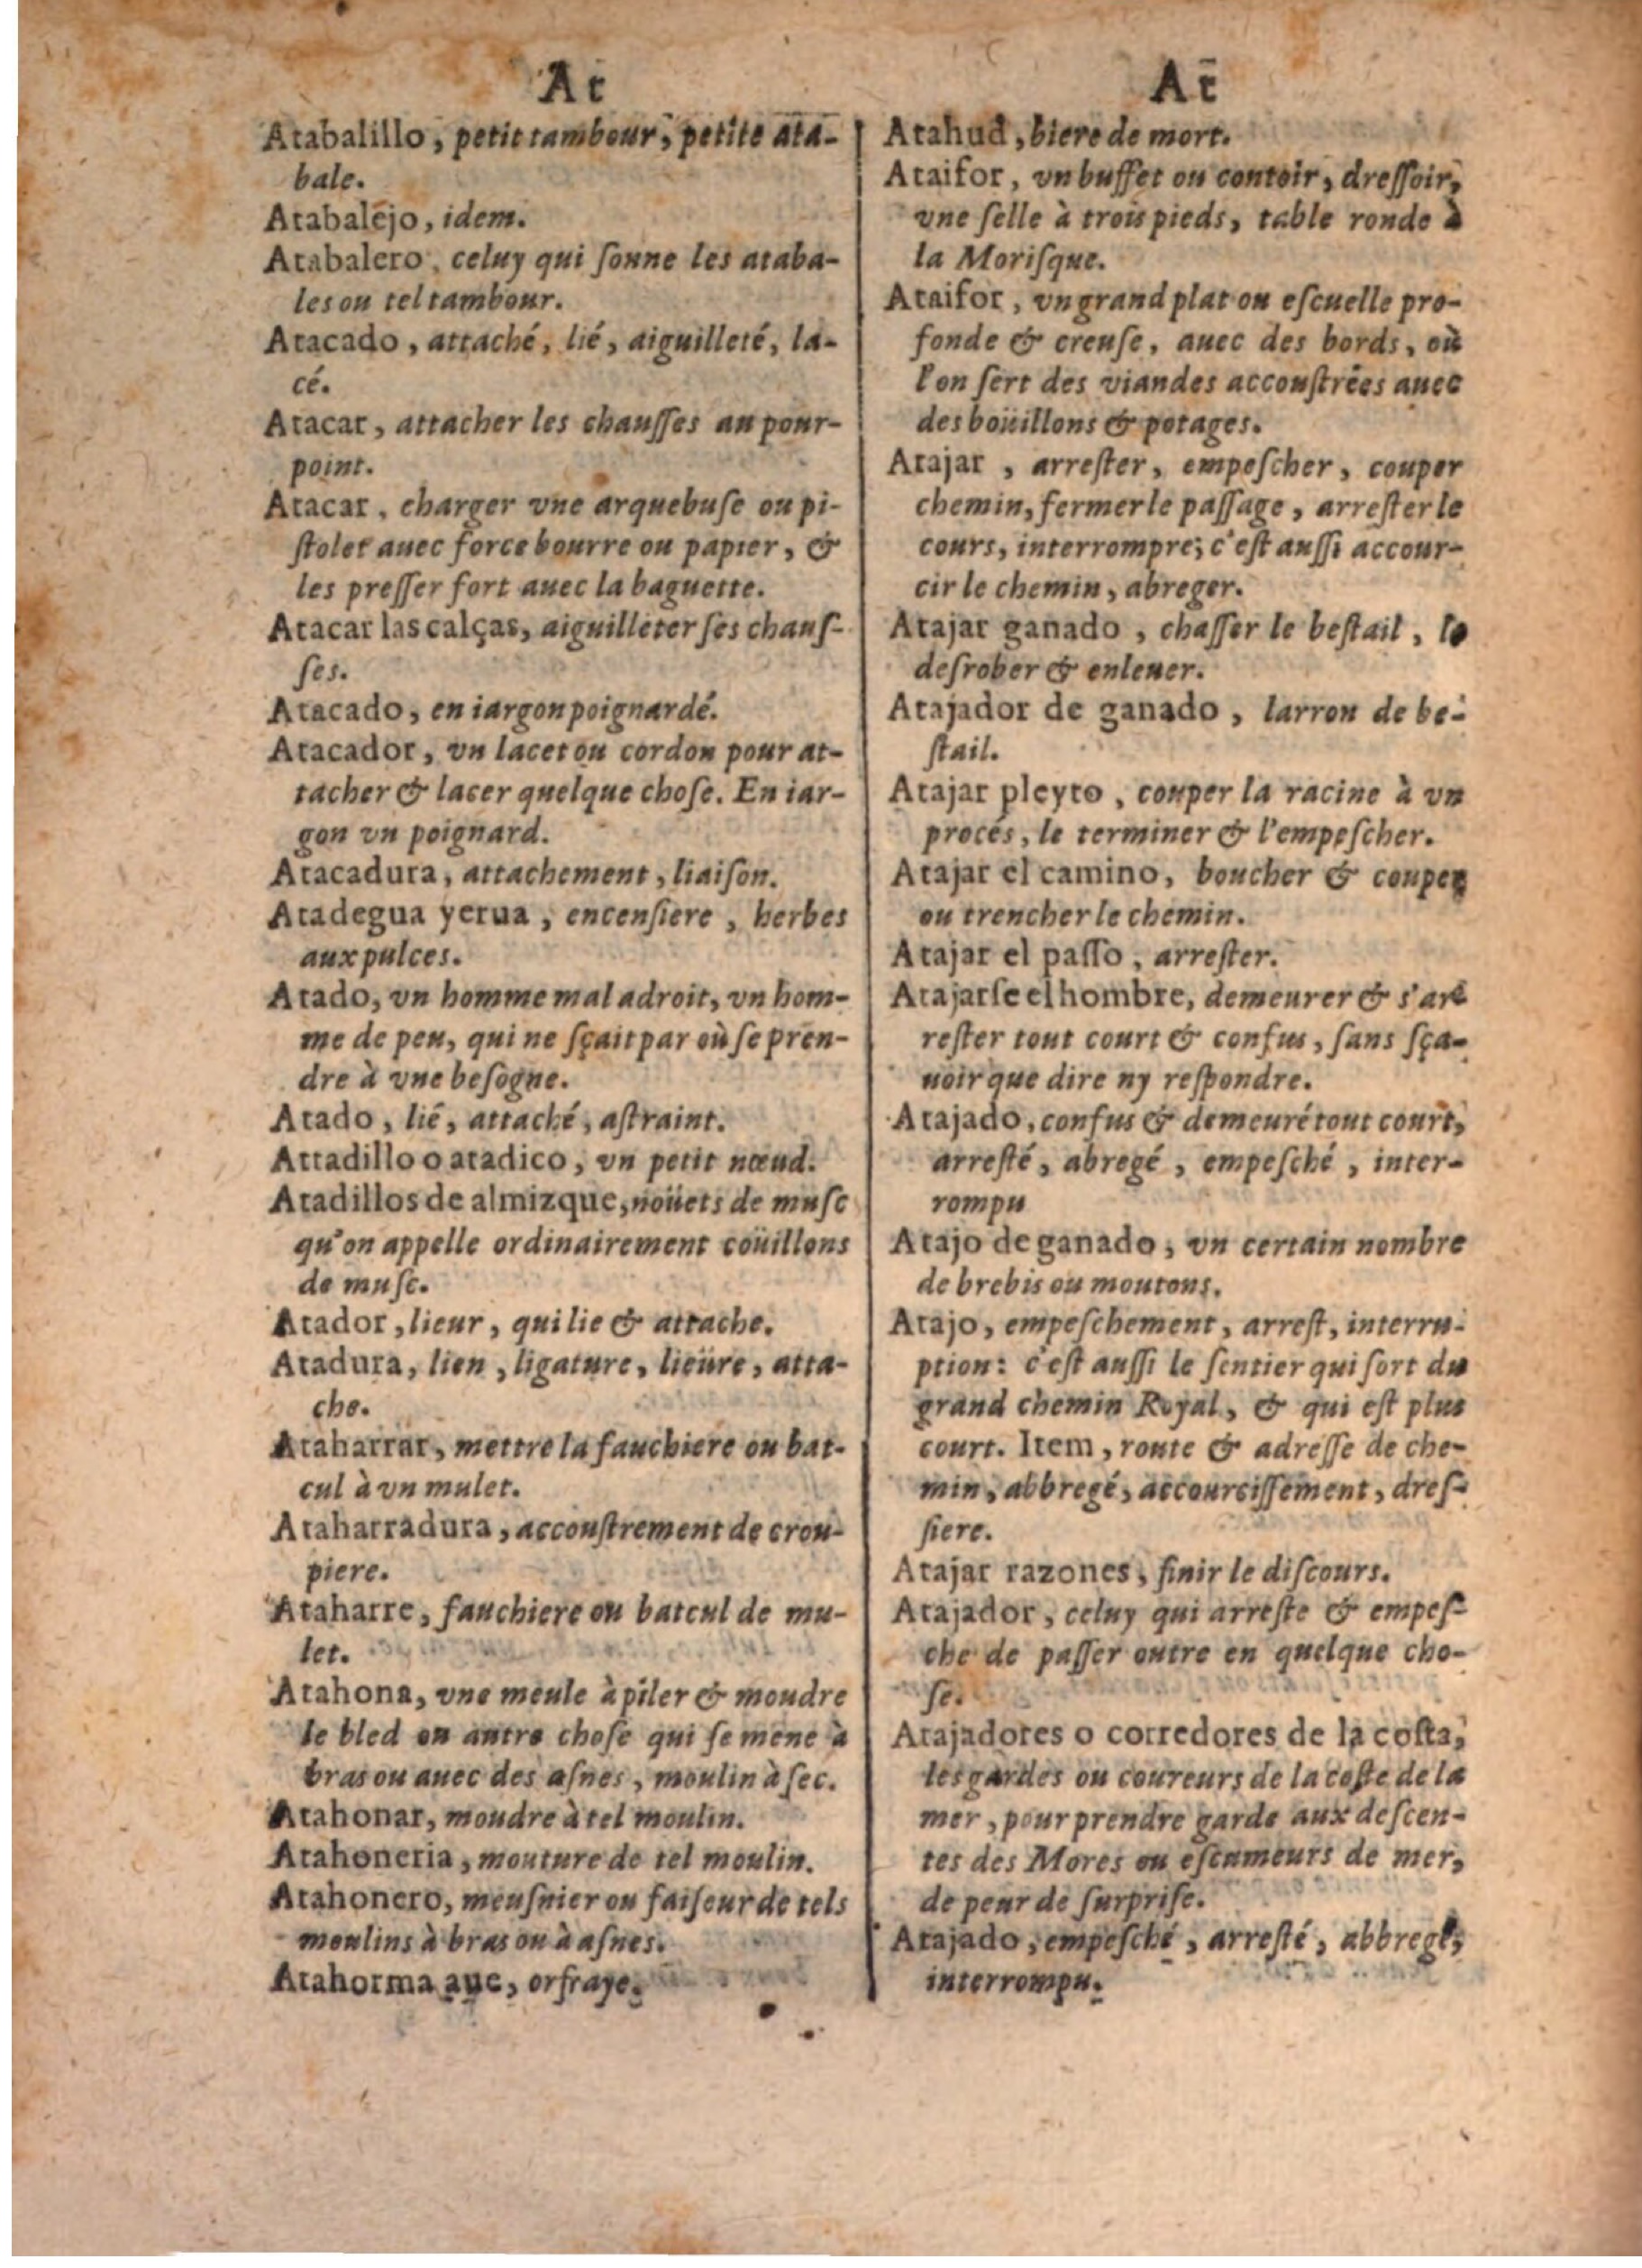 At
Atabalillo, petit tambour, petite ata-
bale.
Atabalejo, idem.
Atabalero, celuy qui ſonne les ataba-
les ou tel tambour.
Atacado, attaché, lié, aiguilleté, la-
cé.
Atacar, attacher les chauſſes au pour-
point.
Atacar, charger vne arquebuſe ou pi-
ſtolet auec force bourre ou papier, &
les preſſer fort auec la baguette.
Atacar las calças, aiguilleter ſes chauſ-
ſes.
Atacado, en iargon poignardé.
Atacador, vn lacet ou cordon pour at-
tacher & lacer quelque choſe. En iar-
gon vn poignard.
Atacadura, attachement, liaiſon.
Atadegua yerua, encenſiere, herbes
aux pulces.
Atado, vn homme mal adroit, vn hom-
me de peu, qui ne ſçait par où ſe pren-
dre à vne beſogne.
Atado, lié, attaché, aſtraint.
Attadillo o atadico, vn petit nœud.
Atadillos de almizque, noüets de muſc
qu'on appelle ordinairement coüillons
de muſc.
Atador, lieur, qui lie & attache.
Atadura, lien, ligature, lieüre, atta-
che.
Ataharrar, mettre la fauchiere ou bat-
cul à vn mulet.
Ataharradura, accouſtrement de crou-
piere.
Ataharre, fauchiere ou batcul de mu-
let.
Atahona, vne meule à piler & moudre
le bled ou autre choſe qui ſe mene à
bras ou auec des aſnes, moulin à ſec.
Atahonar, moudre à tel moulin.
Atahoneria, mouture de tel moulin.
Atahonero, meuſnier ou faiſeur de tels
moulins à bras ou à aſnes.
Atahorma aue, orfraye.
At
Atahud, biere de mort.
Ataifor, vn buffet ou contoir, dreſſoir,
vne ſelle à trois pieds, table ronde à
la Moriſque.
Ataifor, vn grand plat ou eſcuelle pro-
fonde & creuſe, auec des bords, où
l'on ſert des viandes accouſtrées auec
des boüillons & potages.
Atajar, arreſter, empeſcher, couper
chemin, fermer le paſſage, arreſter le
cours, interrompre; c'eſt auſſi accour-
cir le chemin, abreger.
Atajar ganado, chaſſer le beſtail, le
deſrober & enleuer.
Atajador de ganado, larron de be-
ſtail.
Atajar pleyto, couper la racine à vn
procés, le terminer & l'empeſcher.
Atajar el camino, boucher & couper
ou trencher le chemin.
Atajar el paſſo, arreſter.
Atajarſe el hombre, demeurer & s'ar-
reſter tout court & confus, ſans ſça-
uoir que dire ny reſpondre.
Atajado, confus & demeuré tout court,
arreſté, abregé, empeſché, inter-
rompu
Atajo de ganado, vn certain nombre
de brebis ou moutons.
Atajo, empeſchement, arreſt, interru-
ption: c'eſt auſſi le ſentier qui ſort du
grand chemin Royal, & qui eſt plus
court. Item, route & adreſſe de che-
min, abbregé, accourciſſement, dreſ-
ſiere.
Atajar razones, finir le diſcours.
Atajador, celuy qui arreſte & empeſ-
che de paſſer outre en quelque cho-
ſe.
Atajadores o corredores de la coſta,
les gardes ou coureurs de la coſte de la
mer, pour prendre garde aux deſcen-
tes des Mores ou eſcumeurs de mer,
de peur de ſurpriſe.
Atajado, empeſché, arreſté, abbregé,
interrompu.